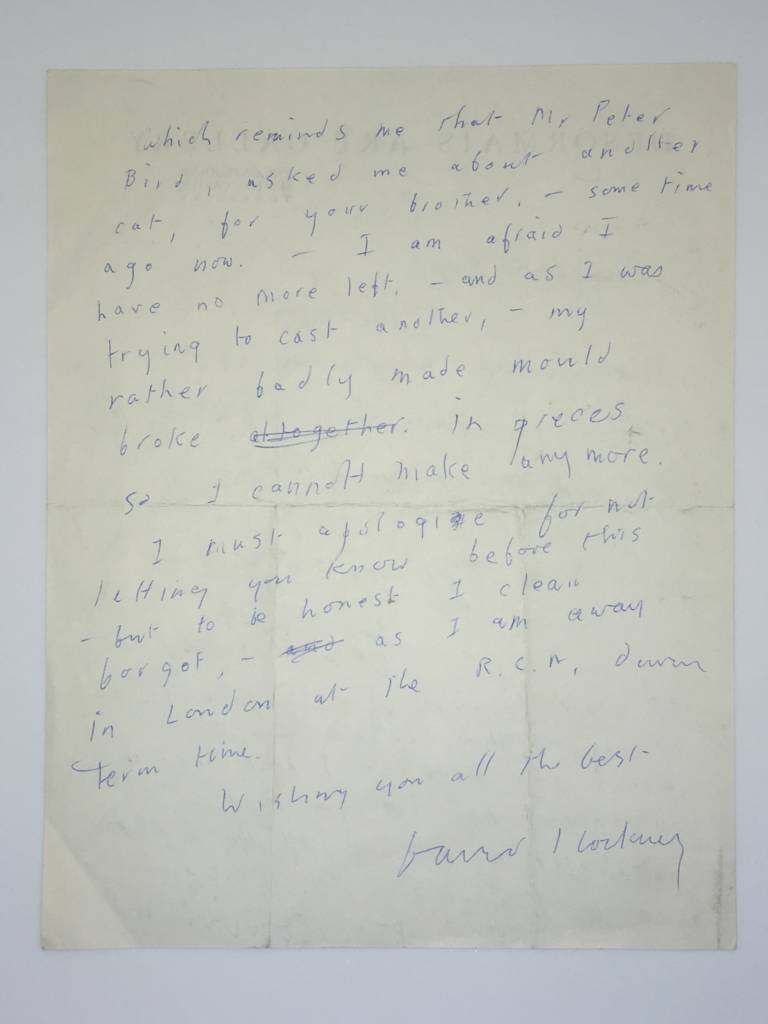 which reminds me that Mr Peter
Bird, asked me about another
cat, for your brother. - some time
ago now. - I am afraid I
have no more left. - and as I was
trying to cast another, - my
rather badly made mould
broke altogether. in pieces
so I cannott make any more.
I must apologise for not
letting you know before this
- but to be honest I clean
forgot, - and as I am away
in London at the R.C.A, during
term time.
Wishing you all the best
David Hockney